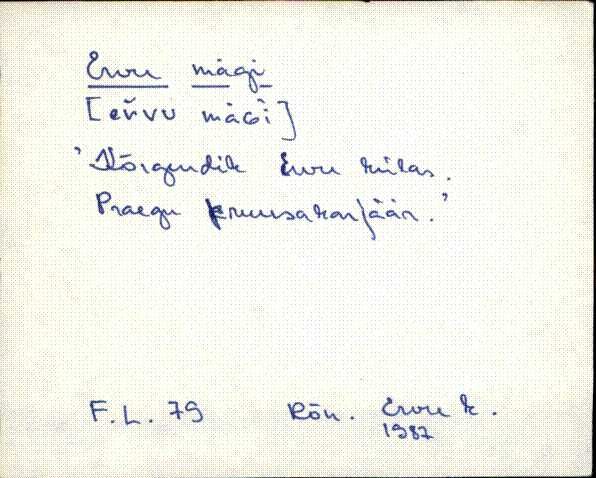 Ervu mägi
[eŕvu mäGì]
'Kõrgendik Ervu külas.
Praegu kruusakarjäär.'
F.L. 79 Rõu. Ervu k.
1987